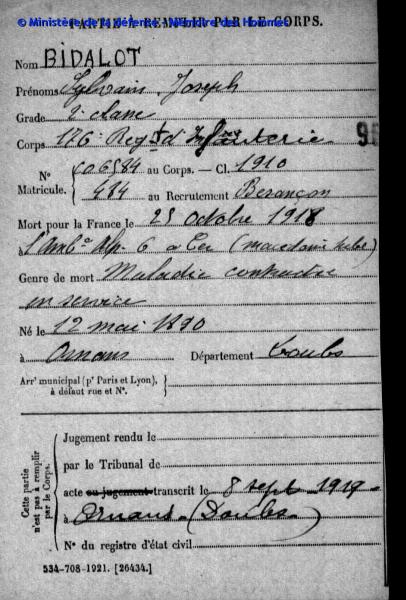 © Ministère de la défense - Mémoire des Hommes
PARTIE À REMPLIR PAR LE CORPS.
Nom BIDALOT
Prénoms Sylvain Joseph
Grade 2e classe
Corps 176e Regt d'Infanterie
N° Matricule. { 606584 au Corps. — Cl. 1910
484 au Recrutement Besançon
Mort pour la France le 25 octobre 1918
à l'Amb. Alp. 6 (Macédoine
Genre de mort Maladie contractée
en service
Né le 12 mai 1890
à Ornans Département Doubs
Arrt municipal (pr Paris et Lyon), à défaut rue et N°. }
Cette partie n'est pas à remplir par le Corps.
Jugement rendu le
par le Tribunal de
acte ou jugement transcrit le 8 sept 1919
à Ornans (Doubs)
N° du registre d'état civil
534-708-1921. [26434.]